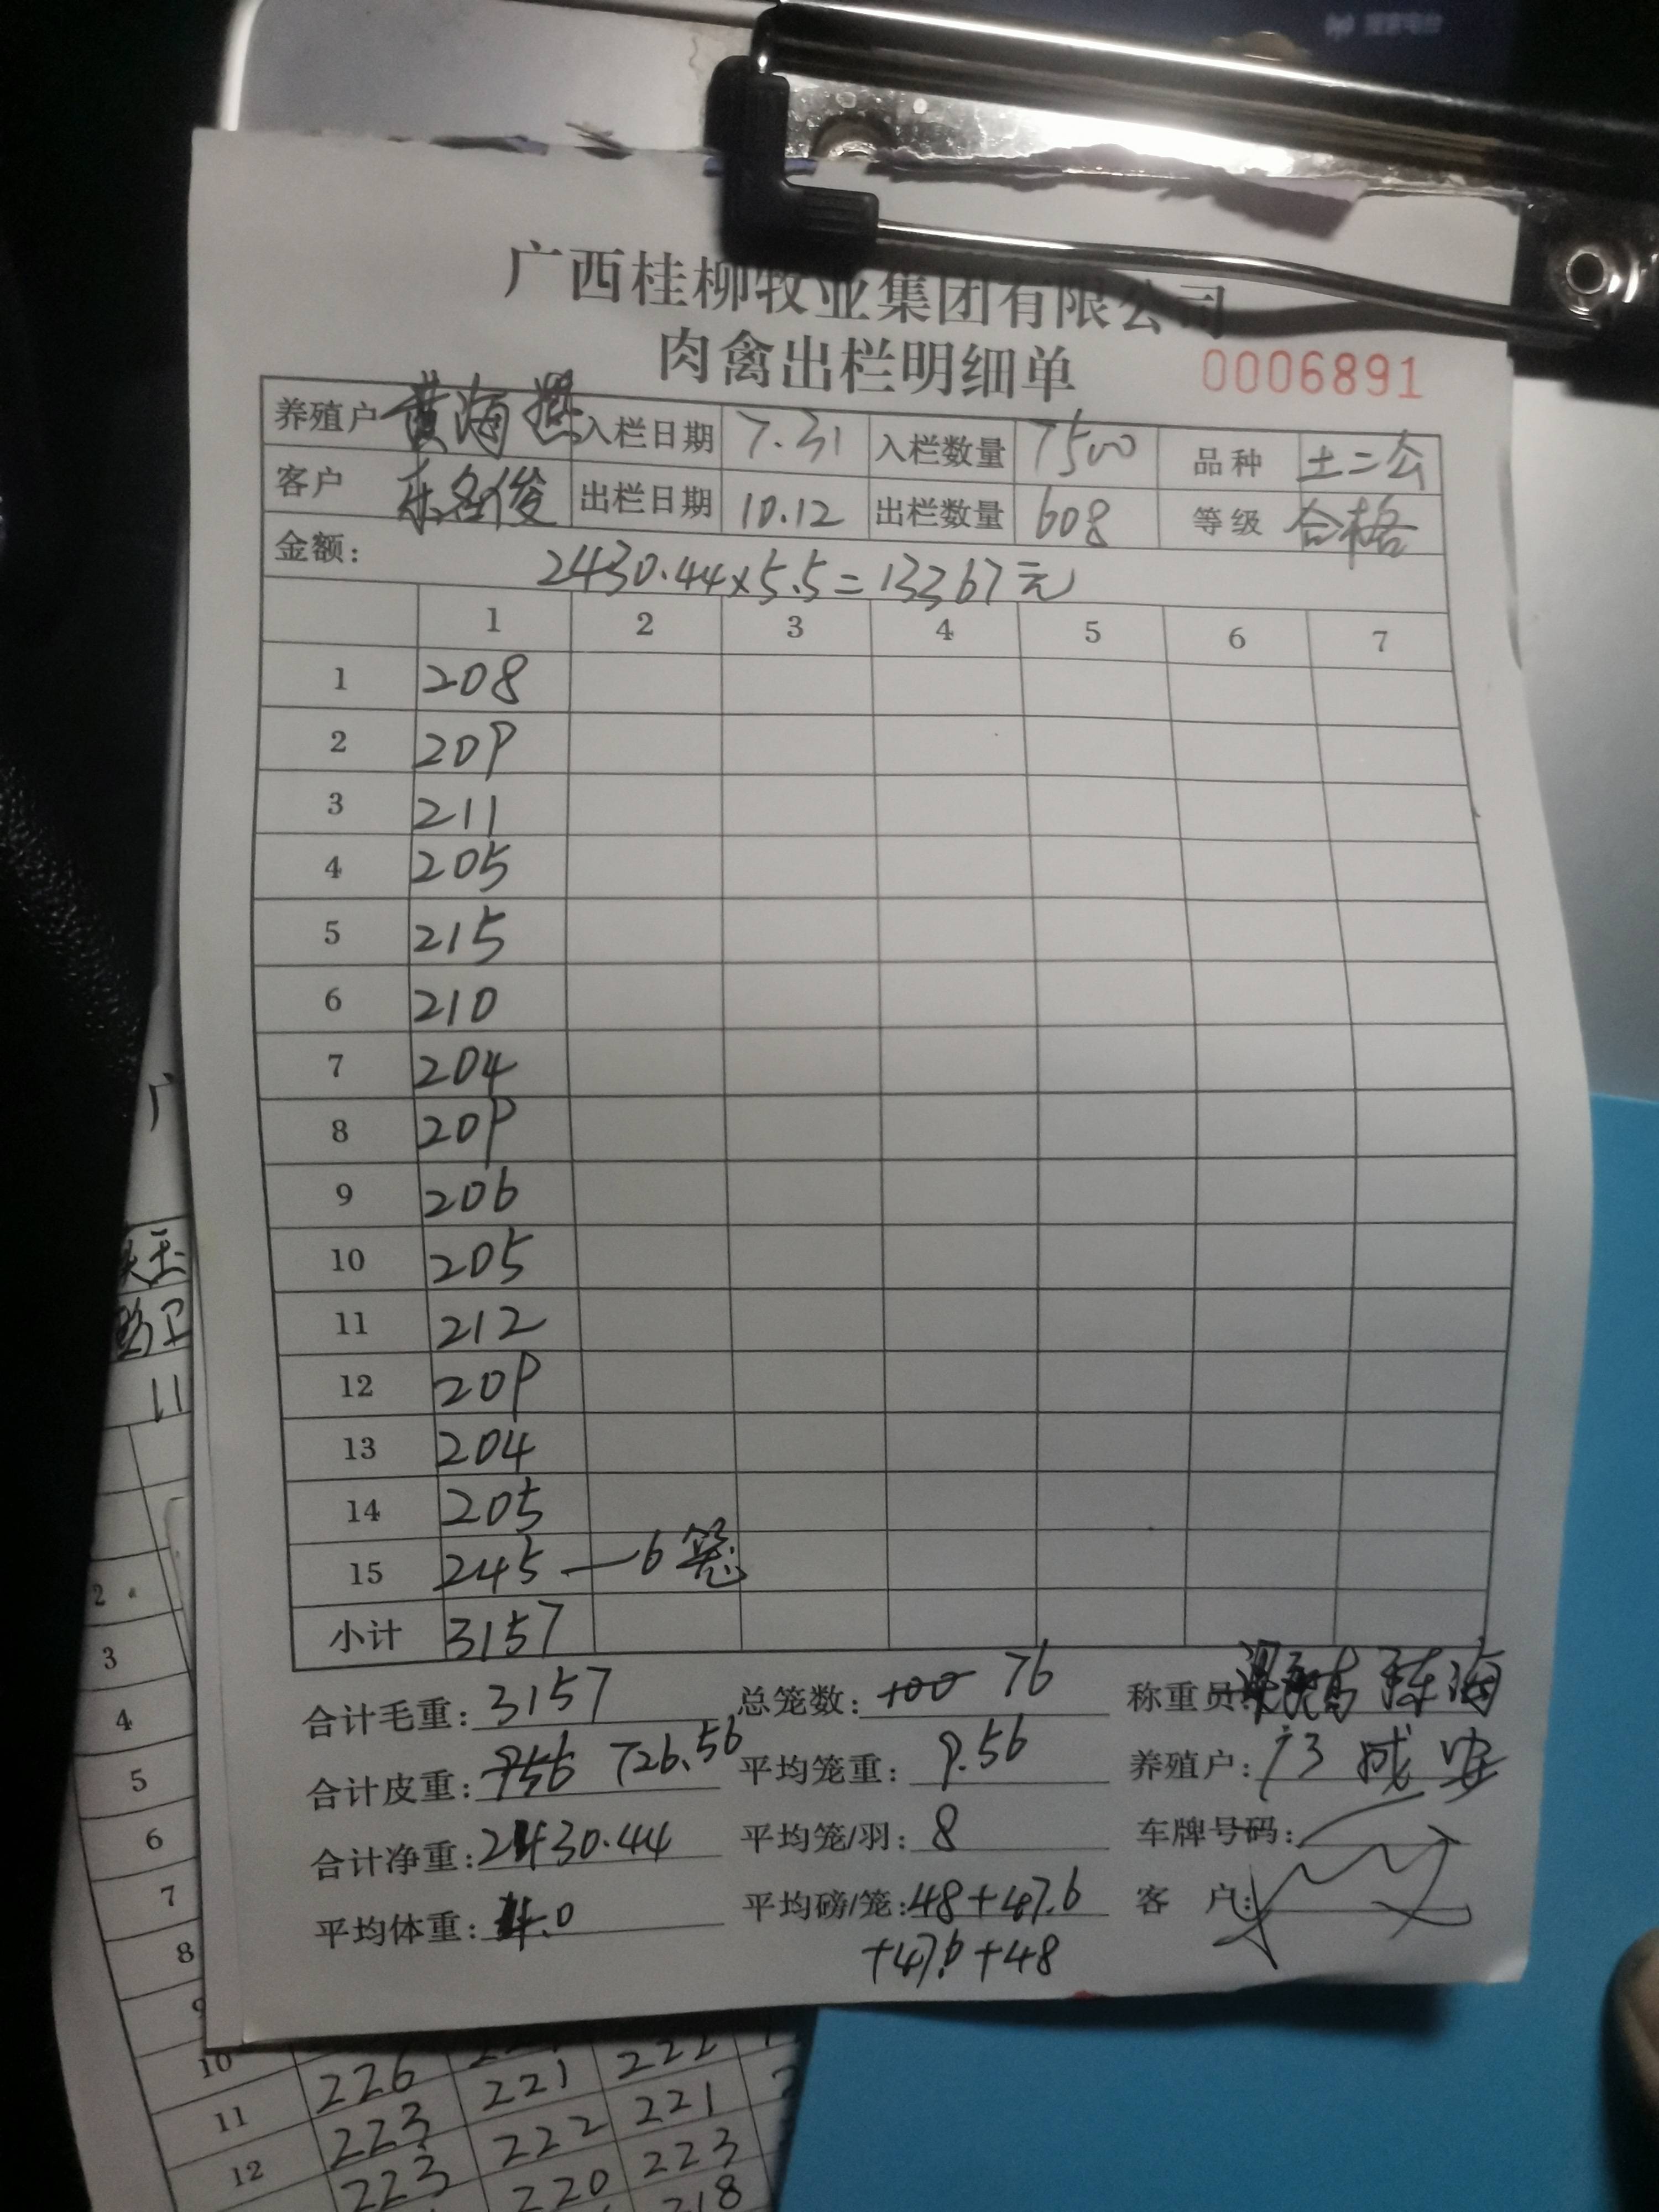 广西桂柳牧业集团有限公司
肉禽出栏明细单 0006891
养殖户 黄海燕 入栏日期 7.31 入栏数量 7500 品种 土二公
客户 名俊 出栏日期 10.12 出栏数量 608 等级 合格
金额: 2430.44×5.5=13367元
1 2 3 4 5 6 7
1 208
2 209
3 211
4 205
5 215
6 210
7 204
8 209
9 206
10 205
11 212
12 209
13 204
14 205
15 245 — 6笼
小计 3157
合计毛重: 3157 总笼数: 100 76 称重员: 陈海
合计皮重: 956 726.56 平均笼重: 9.56 养殖户:
合计净重: 2430.44 平均笼/羽: 8 车牌号码:
平均体重: 4.0 平均磅/笼: 48+47.6 客 户:
+47.6+48
广
11
2
3
4
5
6
7
8
9
10
11 226 221 222
12 223 222 221
223 220 223
218